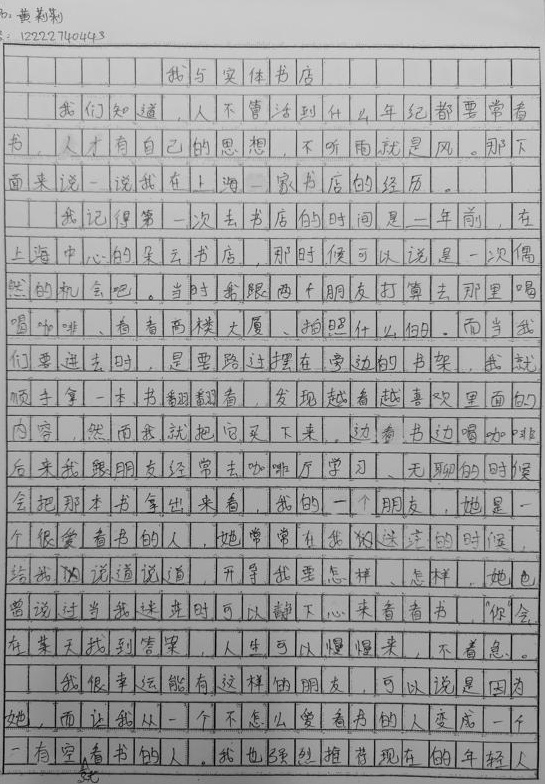 名：黄莉莉
号：12222740443
我与实体书店
我们知道，人不管活到什么年纪都要常看
书，人才有自己的思想，不听雨就是风。那下
面来说一说我在上海一家书店的经历。
我记得第一次去书店的时间是二年前，在
上海中心的朵云书店，那时候可以说是一次偶
然的机会吧。当时我跟两个朋友打算去那里喝
喝咖啡、看看高楼大厦、拍照什么的。而当我
们要进去时，是要路过摆在旁边的书架，我就
顺手拿一本书翻翻看，发现越看越喜欢里面的
内容，然而我就把它买下来，边看书边喝咖啡
后来我跟朋友经常去咖啡厅学习、无聊的时候
会把那本书拿出来看，我的一个朋友，她是一
个很爱看书的人，她常常在我迷茫的时候，
给我说道说道，开导我要怎样、怎样，她也
曾说过当我迷茫时可以静下心来看看书，“你”会
在某天找到答案，人生可以慢慢来，不着急。
我很幸运能有这样的朋友，可以说是因为
她，而让我从一个不怎么爱看书的人变成一个
一有空就看书的人。我也强烈推荐现在的年轻人